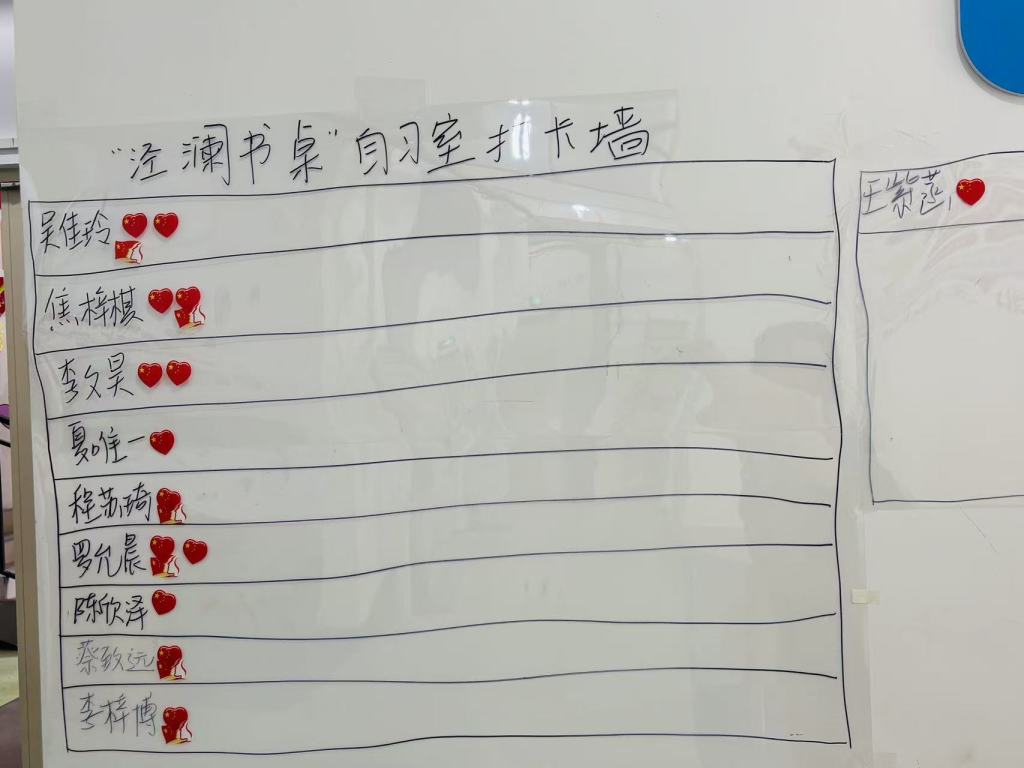 “泾澜书桌”自习室打卡墙
吴佳玲
焦梓棋
李文昊
夏唯一
程苏琦
罗允晨
陈欣泽
蔡致远
李梓博
王紫菡